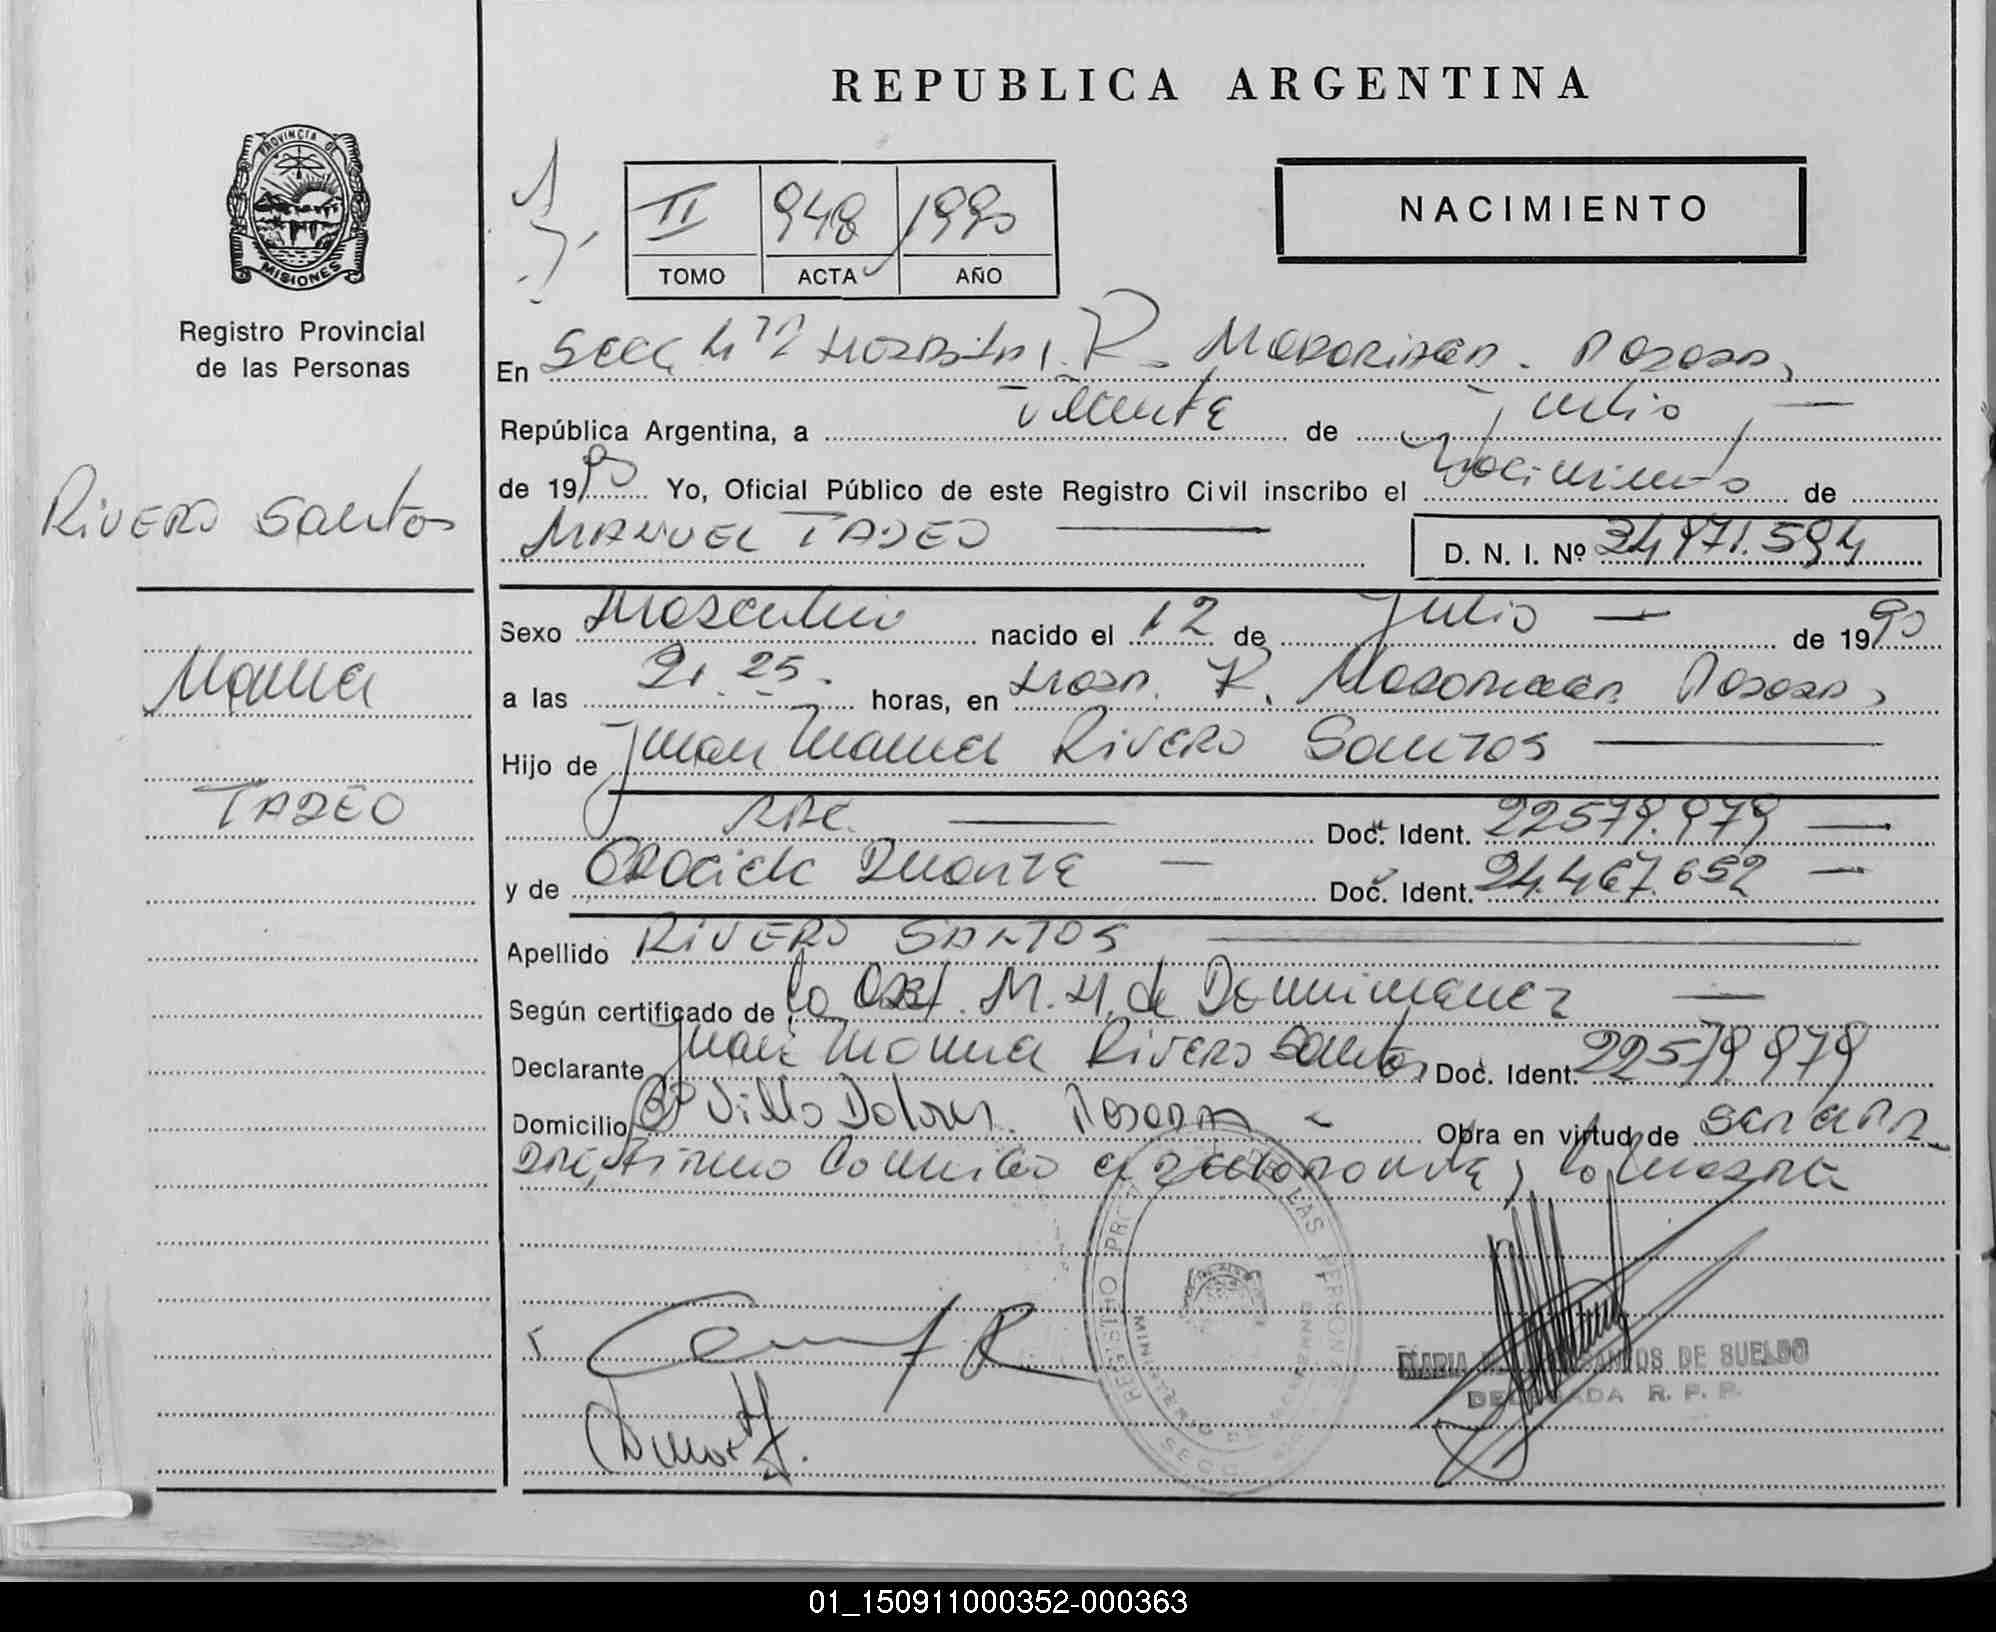 REPUBLICA ARGENTINA
PROVINCIA DE
MISIONES
Registro Provincial
de las Personas
II 948 1990
TOMO ACTA AÑO
NACIMIENTO
En Secc. Hospital R. Madariaga. Posadas,
República Argentina, a Veinte de Julio
de 1990 Yo, Oficial Público de este Registro Civil inscribo el Nacimiento de
MANUEL TADEO
D. N. I. Nº 34.971.594
Rivero Santos
Manuel
TADEO
Sexo Masculino nacido el 12 de Julio de 1990
a las 21.25. horas, en Hosp. R. Madariaga Posadas,
Hijo de Juan Manuel Rivero Santos
Doc. Ident. 22579.979
y de Duarte Doc. Ident. 24.467.652
Apellido RIVERO SANTOS
Según certificado de la Obst. M. H. de
Declarante Juan Manuel Rivero Santos Doc. Ident. 22579979
Domicilio Bº Villa Dolores. Posadas Obra en virtud de
REGISTRO LAS PERSONAS
MINISTERIO DE GOBIERNO
MARIA SANTOS DE SUELDO
DELEGADA R. P. P.
01_150911000352-000363